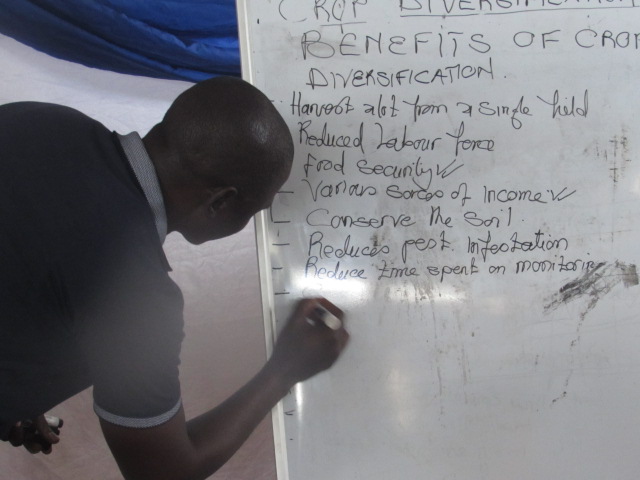 CROP DIVERSIFICATION
BENEFITS OF CROP
DIVERSIFICATION.
- Harvest alot from a single field
Reduced Labour force
food security✓
- Various sorces of income✓
- Conserve the soil.
- Reduces pest infestation
- Reduce time spent on monitorin